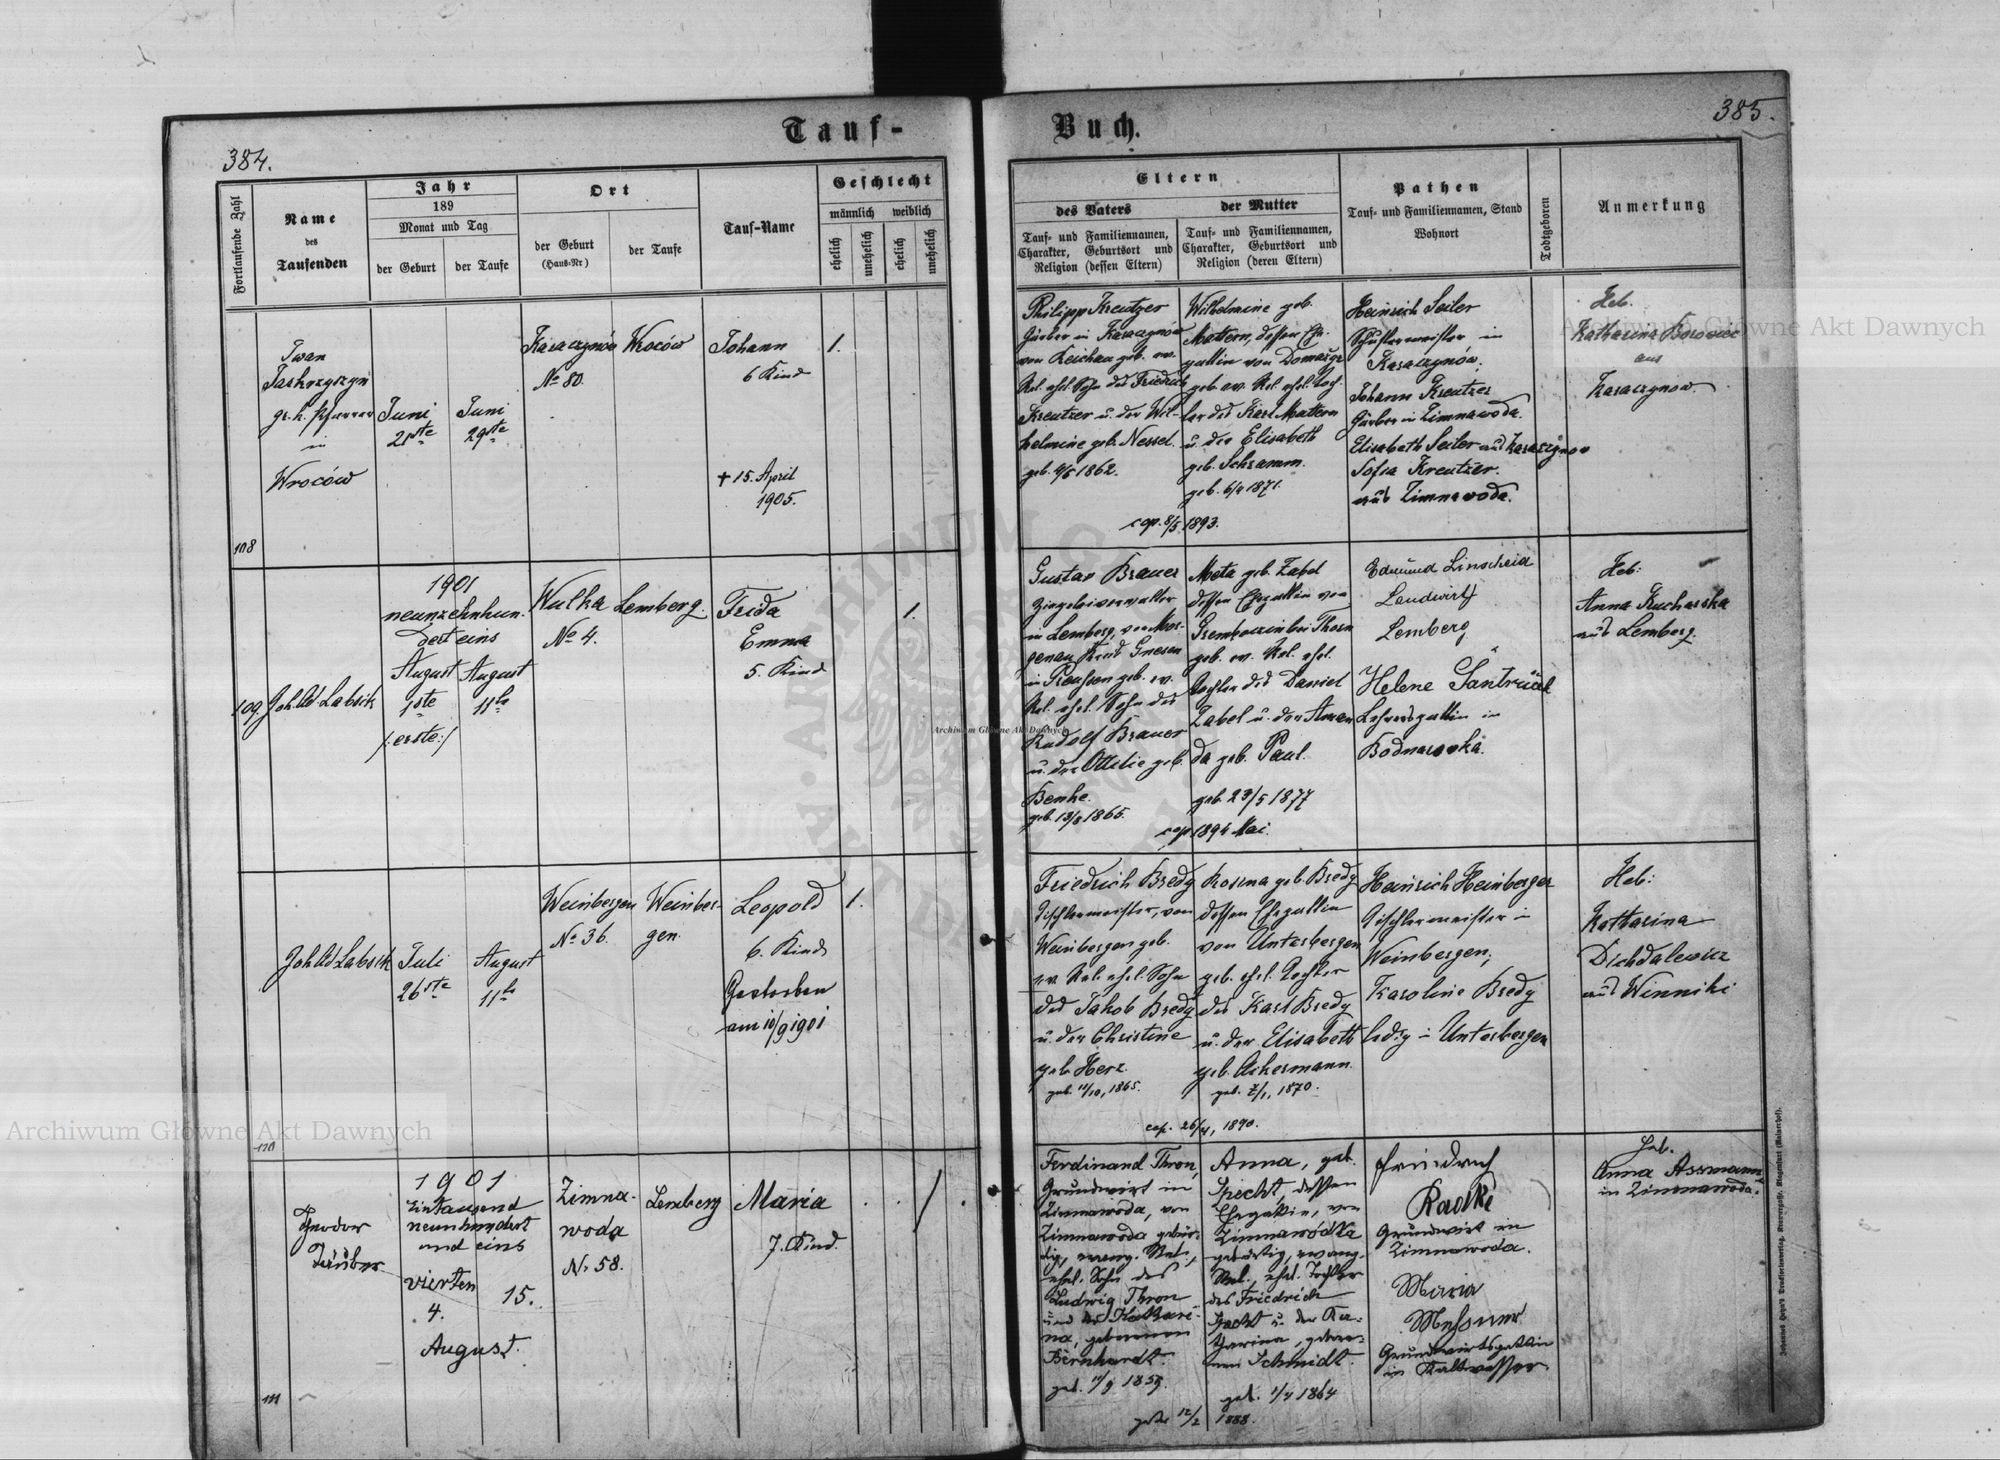 Tauf-
Buch.
384.
385.
Fortlaufende Zahl
Name
des
Taufenden
Jahr
189
Monat und Tag
der Geburt
der Taufe
Ort
der Geburt
(Haus-Nr.)
der Taufe
Tauf-Name
Geschlecht
männlich
weiblich
ehelich
unehelich
ehelich
unehelich
Eltern
des Vaters
Tauf- und Familiennamen,
Charakter, Geburtsort und
Religion (dessen Eltern)
der Mutter
Tauf- und Familiennamen,
Charakter, Geburtsort und
Religion (deren Eltern)
Pathen
Tauf- und Familiennamen, Stand
Wohnort
Todtgeboren
Anmerkung
108
Iwan
gr. k. Pfarrer
in
Wroców
Juni
Juni
29ste
Karaczynów
No 80.
Wroców
Johann
6 Kind
+ 15. April
1905.
1.
Philipp Kreutzer
Gärber in Karaczynów
von Reichau geb. ev.
Rel. ehel. Sohn des Friedrich
Kreutzer u. der Wil-
helmine geb. Nessel.
1862.
Wilhelmine geb.
Mattern, dessen Eh-
gattin von
geb. ev. Rel. ehel. Toch-
ter des Karl Mattern
u. der Elisabeth
geb. Schramm.
geb. 6/4 1871.
cop. 8/5 1893.
Heinrich Seiler
Schustermeister in
Karaczynów;
Johann Kreutzer
Gärber in Zimnawoda.
Elisabeth Seiler aus Karaczynow
Sofia Kreutzer.
aus Zimnawoda.
Heb.
Katharina
aus
Karaczynow.
109
Joh. Ad. Labsik
1901
neunzehnhun-
dert eins
August
1ste
/:erste:/
August
11te
Wulka
No 4.
Lemberg.
Frida
Emma
5. Kind
1.
Gustav Brauer
Ziegeleiverwalter
in Lemberg, von Mor-
genau, Kreis Gnesen
in Preußen geb. ev.
Rel. ehel. Sohn des
Rudolf Brauer
u. der Ottilie geb.
Benke.
geb. 13/8 1865.
Meta geb. Zabel
dessen Ehegattin von
bei Thorn
geb. ev. Rel. ehel.
Tochter des Daniel
Zabel u. der Aman-
da geb. Paul.
geb. 23/5 1877
cop. 1894 Mai.
Edmund Linscheid
Landwirth
Lemberg
Helene Šantrůček
Lehrersgattin in
Bodnarowka.
Heb:
Anna Kucharska
aus Lemberg.
110
Joh. Ad. Labsik
Juli
26ste
August
11te
Weinbergen
No 36.
Weinber-
gen.
Leopold
6. Kind
Gestorben
am 10/9 1901
1.
Friedrich Bredy
Tischlermeister, von
Weinbergen geb.
ev. Rel. ehel. Sohn
des Jakob Bredy
u. der Christine
geb. Herz.
geb. 11/10, 1865.
Rosina geb. Bredy
dessen Ehegattin
von Unterbergen
geb. ehel. Tochter
des Karl Bredy
u. der Elisabeth
geb. Ackermann.
geb. 7/1, 1870.
cop. 26/4, 1890.
Heinrich Heinberger
Tischlermeister in
Weinbergen;
Karoline Bredy
ledig in Unterbergen
Heb:
Katharina
Dichdalewicz
aus Winniki
111
Theodor
Zäuber
1901
Eintausend
neunhundert
und eins
vierten
4.
August.
15.
Zimna-
woda
Nr. 58.
Lemberg
Maria
7. Kind.
/
Ferdinand Thron,
Grundwirt in
Zimnawoda, von
Zimnawoda gebür-
tig, evang. Rel.,
ehel. Sohn des
Ludwig Thron
und der Kathari-
na, geborenen
Bernhardt.
geb. 11/9 1859.
Anna, geb.
Specht, dessen
Ehegattin, von
Zimnawodka
gebürtig, evang.
Rel., ehel. Tochter
des Friedrich
Specht u. der Ka-
tharina, gebore-
nen Schmidt.
geb. 1/4 1864
12/2 1888.
Friedrich
Radke
Grundwirt in
Zimnawoda.
Maria
Messner
Grundwirtsgattin
in Kaltwasser
Heb.
Anna Assmann
in Zimnawoda.
Archiwum Główne Akt Dawnych
Archiwum Główne Akt Dawnych
Archiwum Główne Akt Dawnych